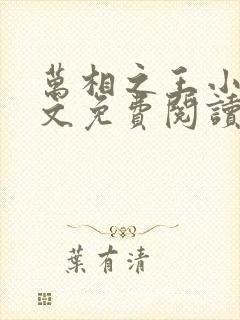 萬相之王小
文免費閱讀
葉有清